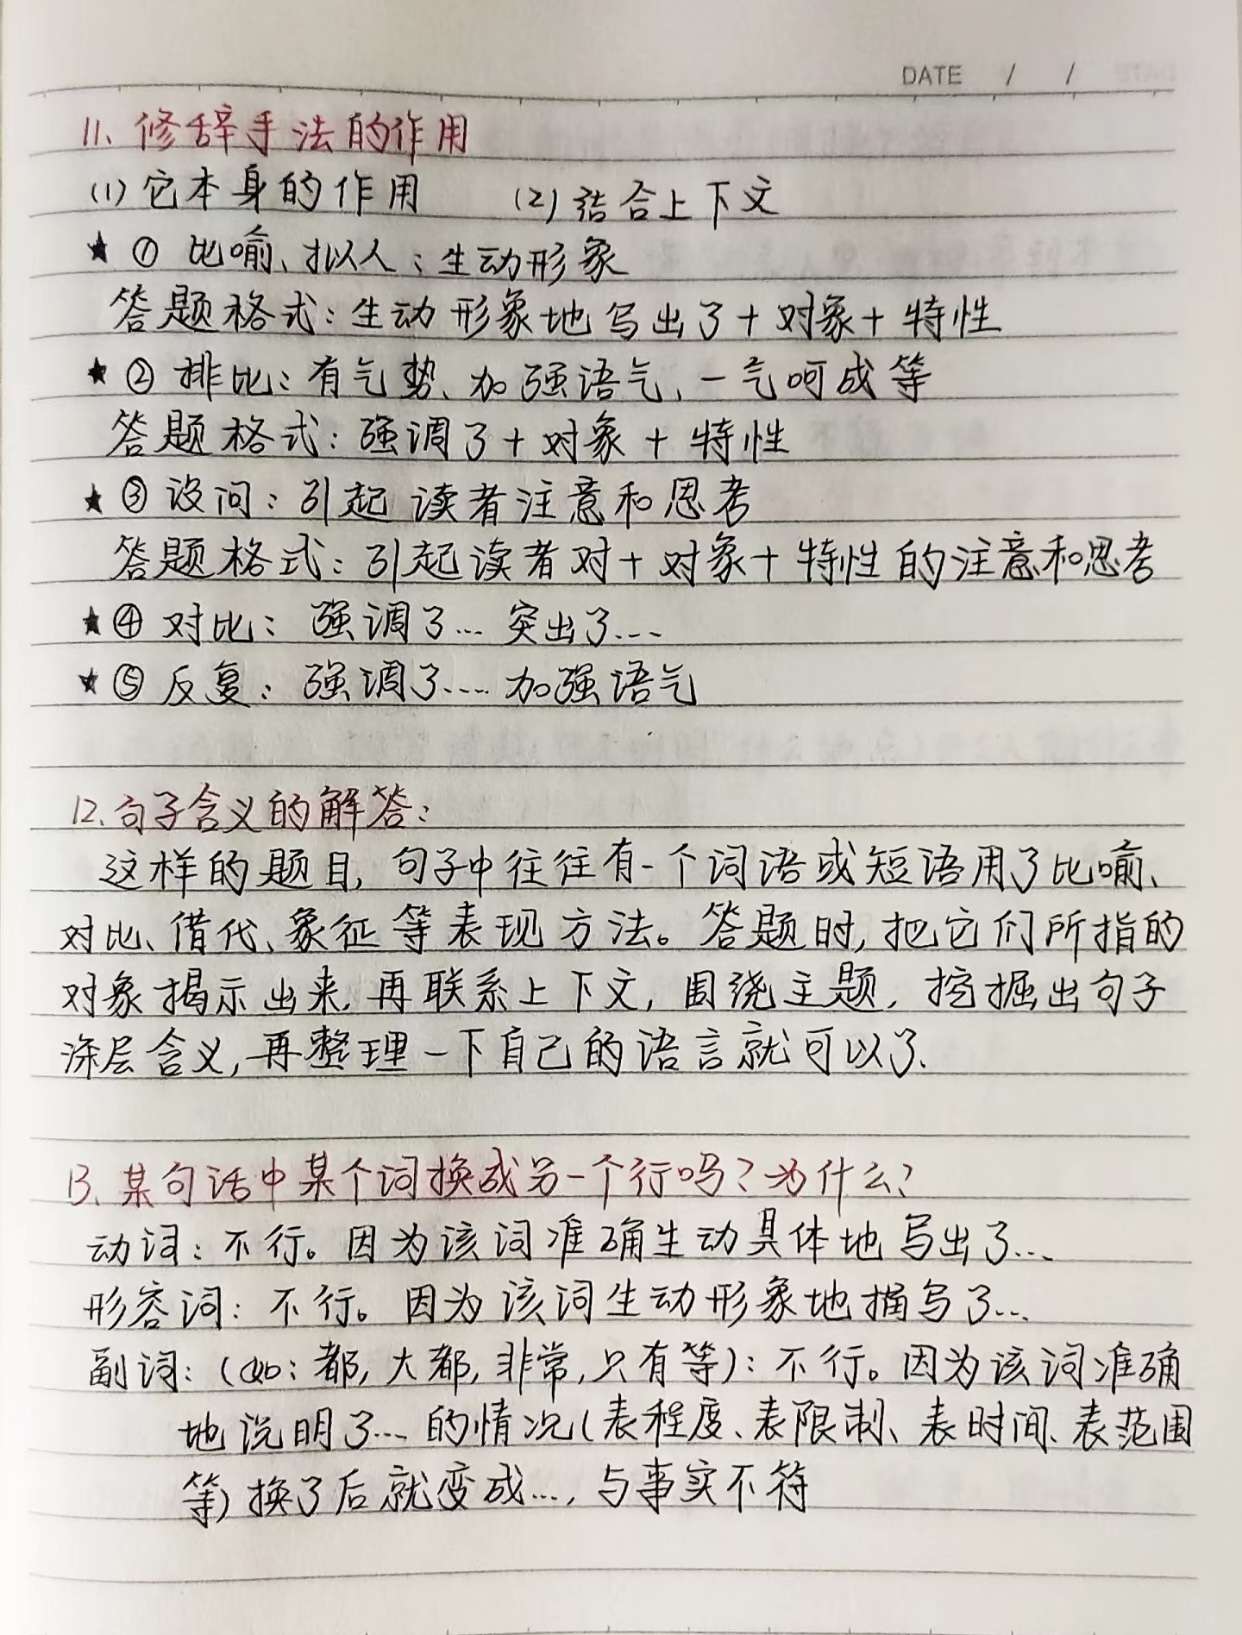 DATE / /
11、修辞手法的作用
(1)它本身的作用 (2)结合上下文
★ ① 比喻、拟人：生动形象
答题格式：生动形象地写出了+对象+特性
★ ② 排比：有气势、加强语气、一气呵成等
答题格式：强调了+对象+特性
★ ③ 设问：引起读者注意和思考
答题格式：引起读者对+对象+特性的注意和思考
★ ④ 对比：强调了… 突出了…
★ ⑤ 反复：强调了… 加强语气
12.句子含义的解答：
这样的题目，句子中往往有一个词语或短语用了比喻、
对比、借代、象征等表现方法。答题时，把它们所指的
对象揭示出来，再联系上下文，围绕主题，挖掘出句子
深层含义，再整理一下自己的语言就可以了.
13、某句话中某个词换成另一个行吗？为什么？
动词：不行。因为该词准确生动具体地写出了…
形容词：不行。因为该词生动形象地描写了…
副词：(如：都，大都，非常，只有等)：不行。因为该词准确
地说明了…的情况(表程度、表限制、表时间、表范围
等)换了后就变成…，与事实不符